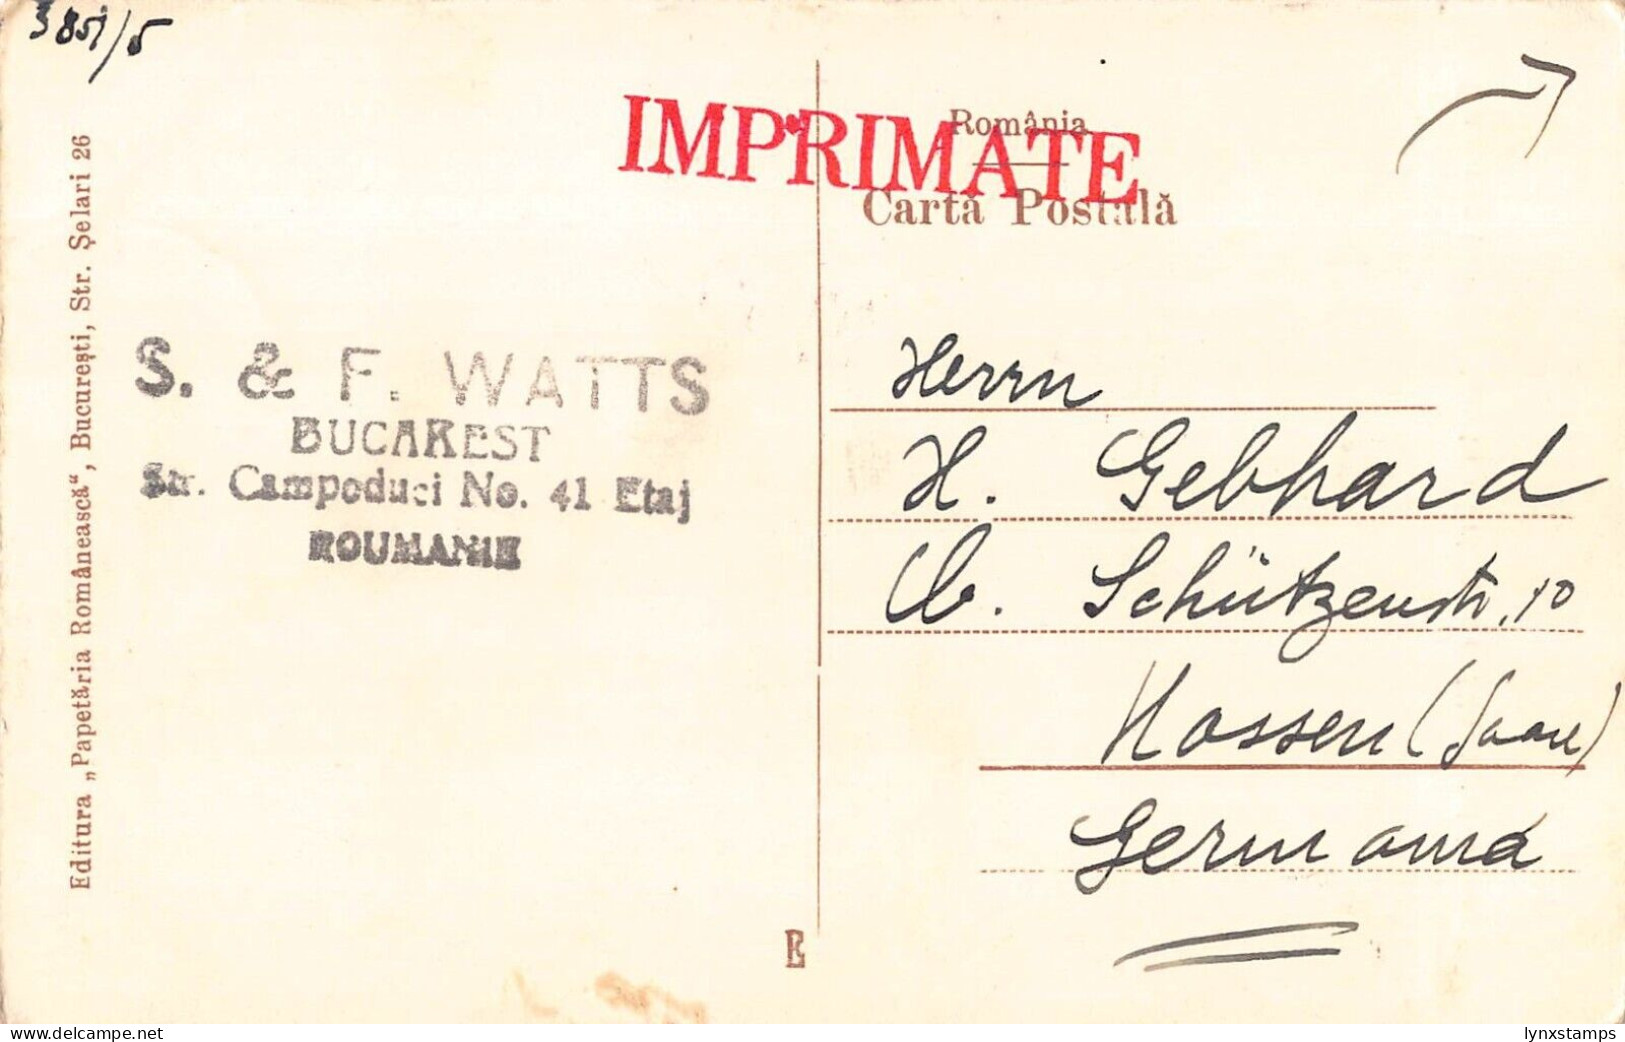 3851/5
IMPRIMATE
România
Cartă Poștală
Editura „Papetăria Românească“, București, Str. Șelari 26
S. & F. WATTS
BUCAREST
Str. Campoduci No. 41 Etaj
ROUMANIE
Herrn
H. Gebhard
Schützenstr. 10
Hossen (Saare)
Germania
E
www.delcampe.net
lynxstamps